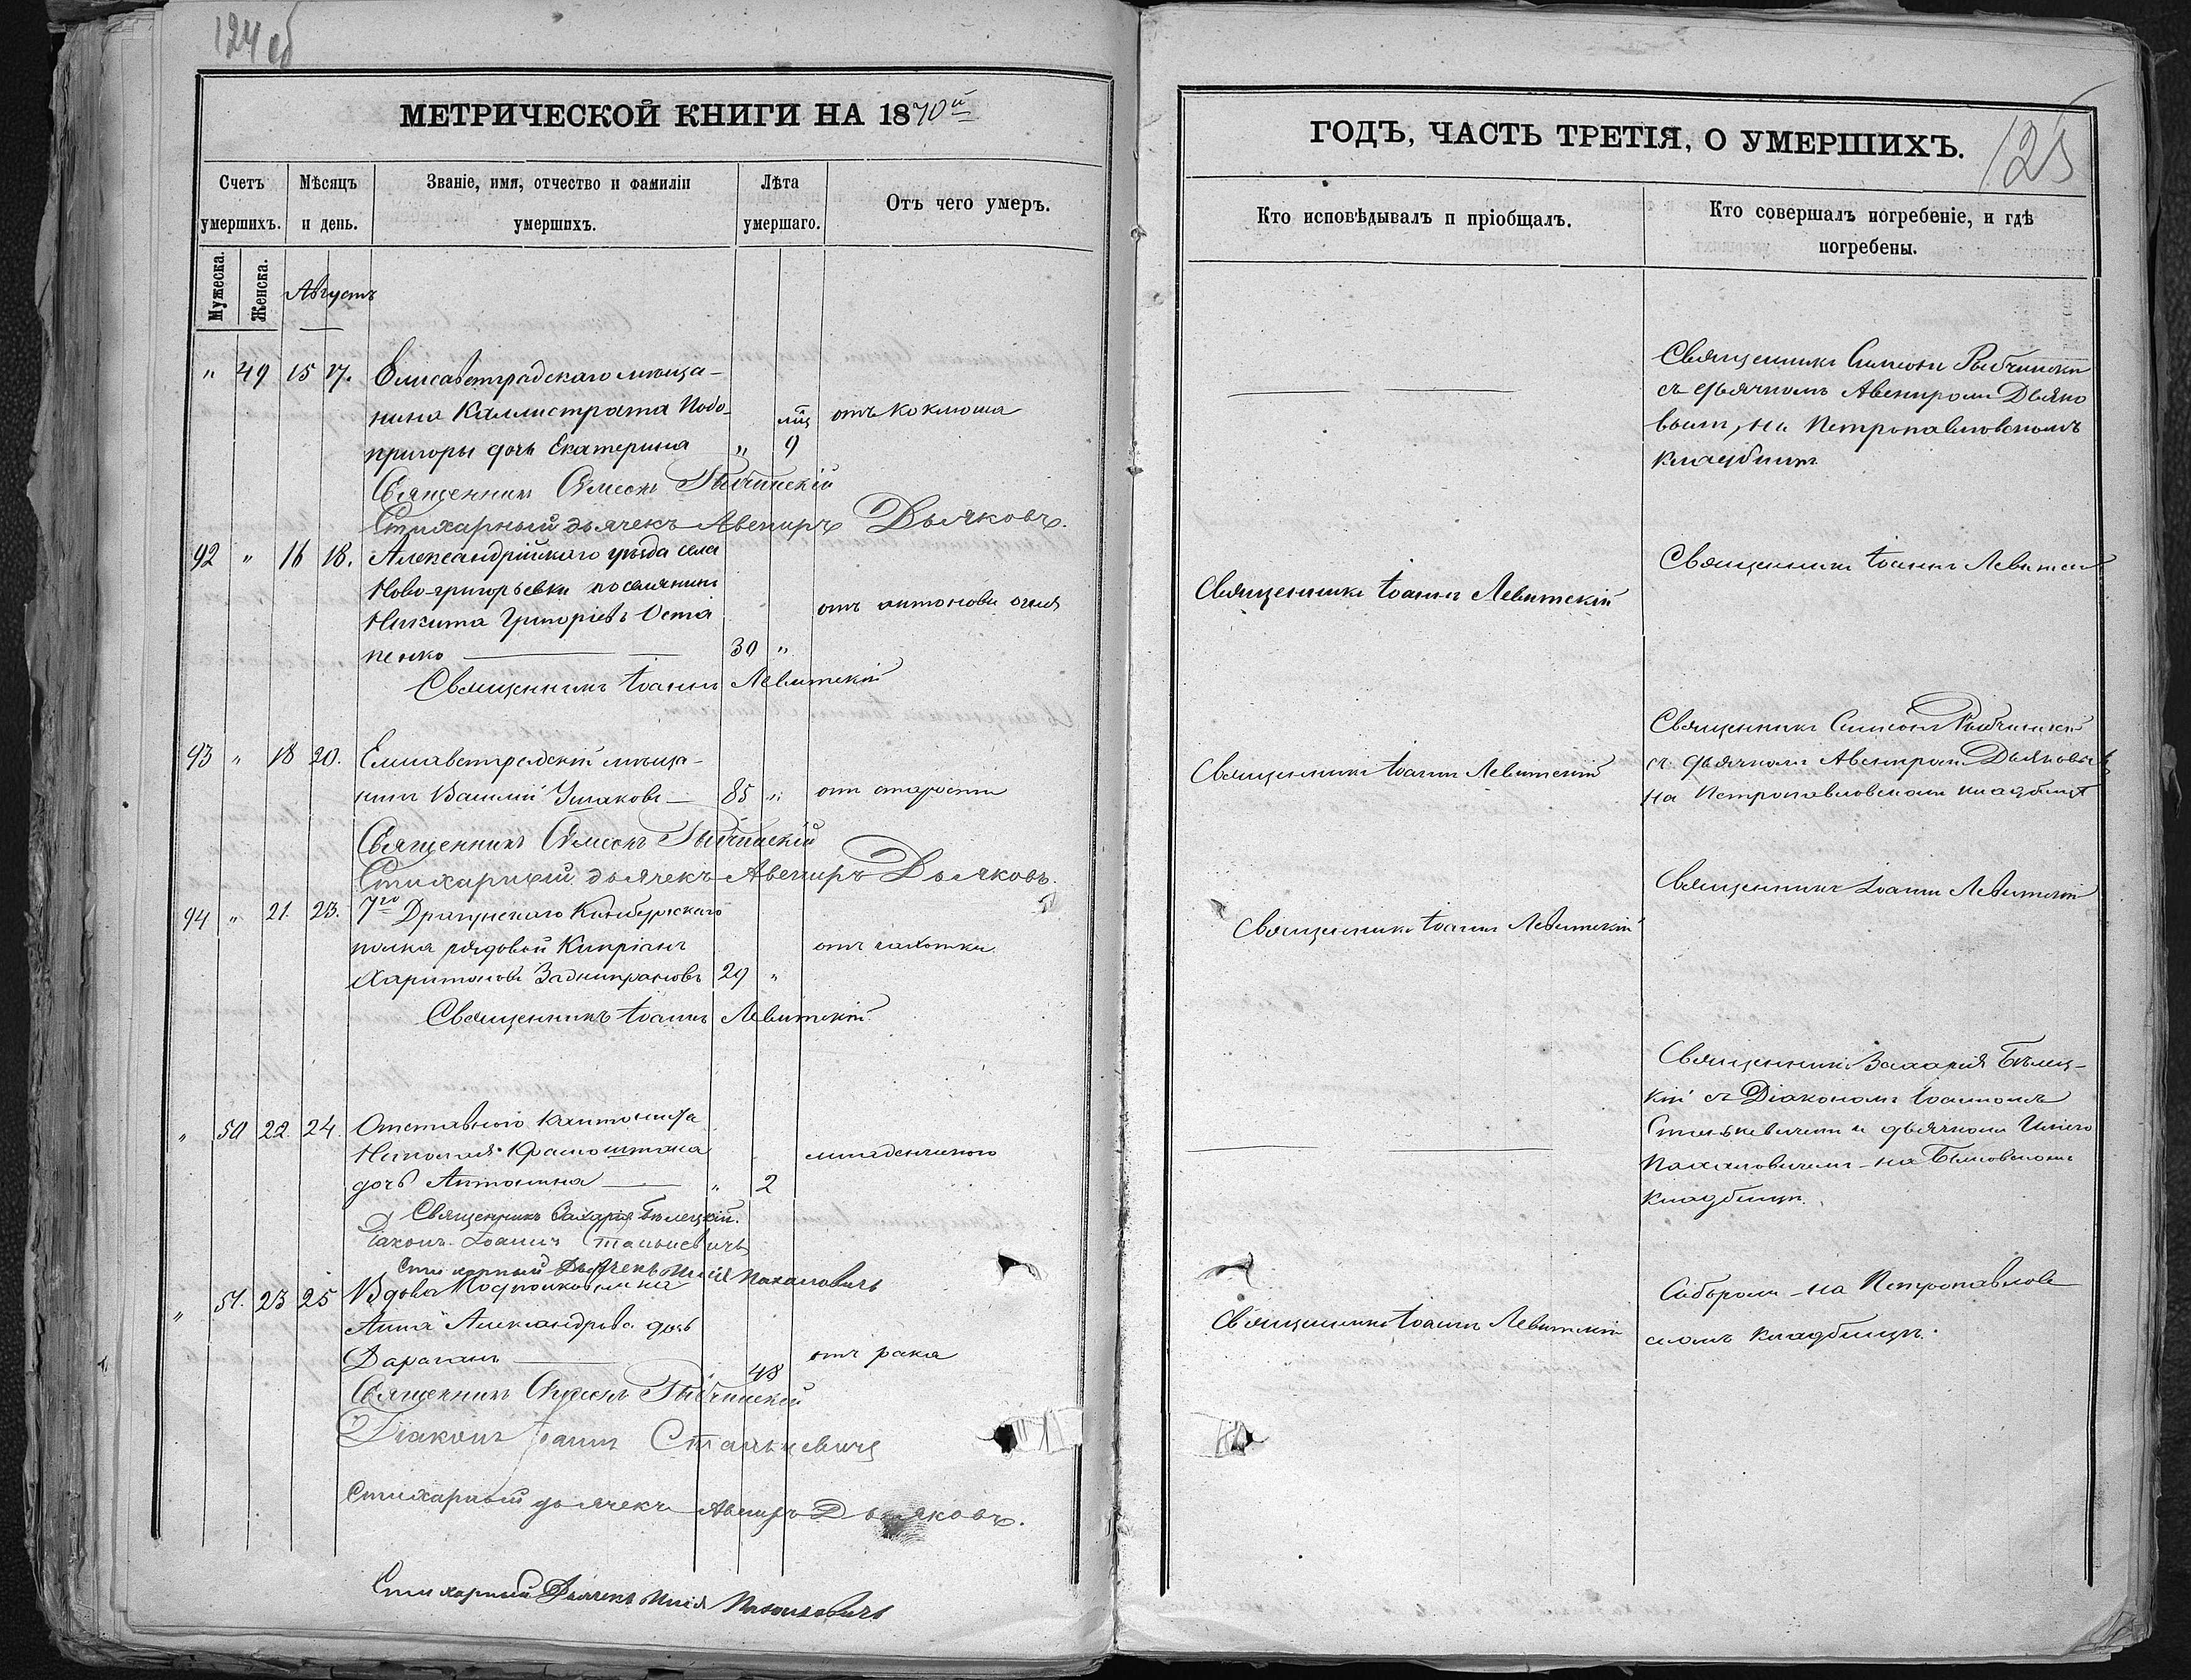 124 об
МЕТРИЧЕСКОЙ КНИГИ НА 1870й
Счетъ умершихъ.
Мѣсяцъ и день.
Званіе, имя, отчество и фамиліи умершихъ.
Лѣта умершаго.
Отъ чего умеръ.
Мужеска.
Женска.
Августъ
" 49 15 17. Елисаветградскаго мѣща-
нина Каллистрата Подо- мц отъ коклюша
пригоры дочь Екатерина " 9
Священник Симеонъ Рыбчинскій
Стихарный дьячекъ Авениръ Дьяковъ.
92 " 16 18. Александрійскаго уѣзда села
Ново-григорьевки поселянинъ
Никита Григоріевъ Оста отъ антонова огня
пенко 30 "
Священникъ Іоаннъ Левитскій
93 " 18 20. Елисаветградскій мѣща-
нинъ Василій Ушаковъ 85 " отъ старости
Священникъ Симеонъ Рыбчинскій
Стихарный дьячекъ Авениръ Дьяковъ.
94 " 21. 23. 7го Драгунскаго Кинбурнскаго
полка рядовой Кипріанъ отъ чахотки
Харитоновъ Заднипрановъ 29 "
Священникъ Іоаннъ Левитскій
" 50 22. 24. Отставного кантониста
Николая дочь Антонина " 2 младенческого
Священникъ Захарія Бѣлецкій.
Діаконъ Іоаннъ Станкевичъ
Стихарный Дьячекъ Илія Пахаловичъ
" 51. 23 25 Вдова
Анна Александрова дочь
Дараганъ 48 отъ рака
Священникъ Симеонъ Рыбчинскій
Діаконъ Іоаннъ Станкевичъ
Стихарный дьячекъ Авениръ Дьяковъ.
Стихарный Дьячекъ Илія Пахаловичъ
125
ГОДЪ, ЧАСТЬ ТРЕТІЯ, О УМЕРШИХЪ.
Кто исповѣдывалъ и пріобщалъ.
Кто совершалъ погребеніе, и гдѣ погребены.
Священникъ Симеонъ Рыбчински
съ дьячкомъ Авениромъ Дьяко
вымъ, на Петропавловскомъ
кладбищѣ
Священникъ Іоаннъ Левитскій
Священникъ Іоаннъ Левитскі
Священникъ Іоаннъ Левитскій
Священникъ Симеонъ Рыбчинскій
съ дьячкомъ Авениромъ Дьяковымъ
на Петропавловскомъ кладбищѣ
Священникъ Іоаннъ Левитскій
Священникъ Іоаннъ Левитскій
Священникъ Захарія Бѣлец-
кій съ Діакономъ Іоанномъ
Станкевичемъ и дьячкомъ Иліею
Пахаловичемъ на Быковскомъ
кладбищѣ.
Священникъ Іоаннъ Левитскій
Соборомъ на Петропавлов
скомъ кладбищѣ.